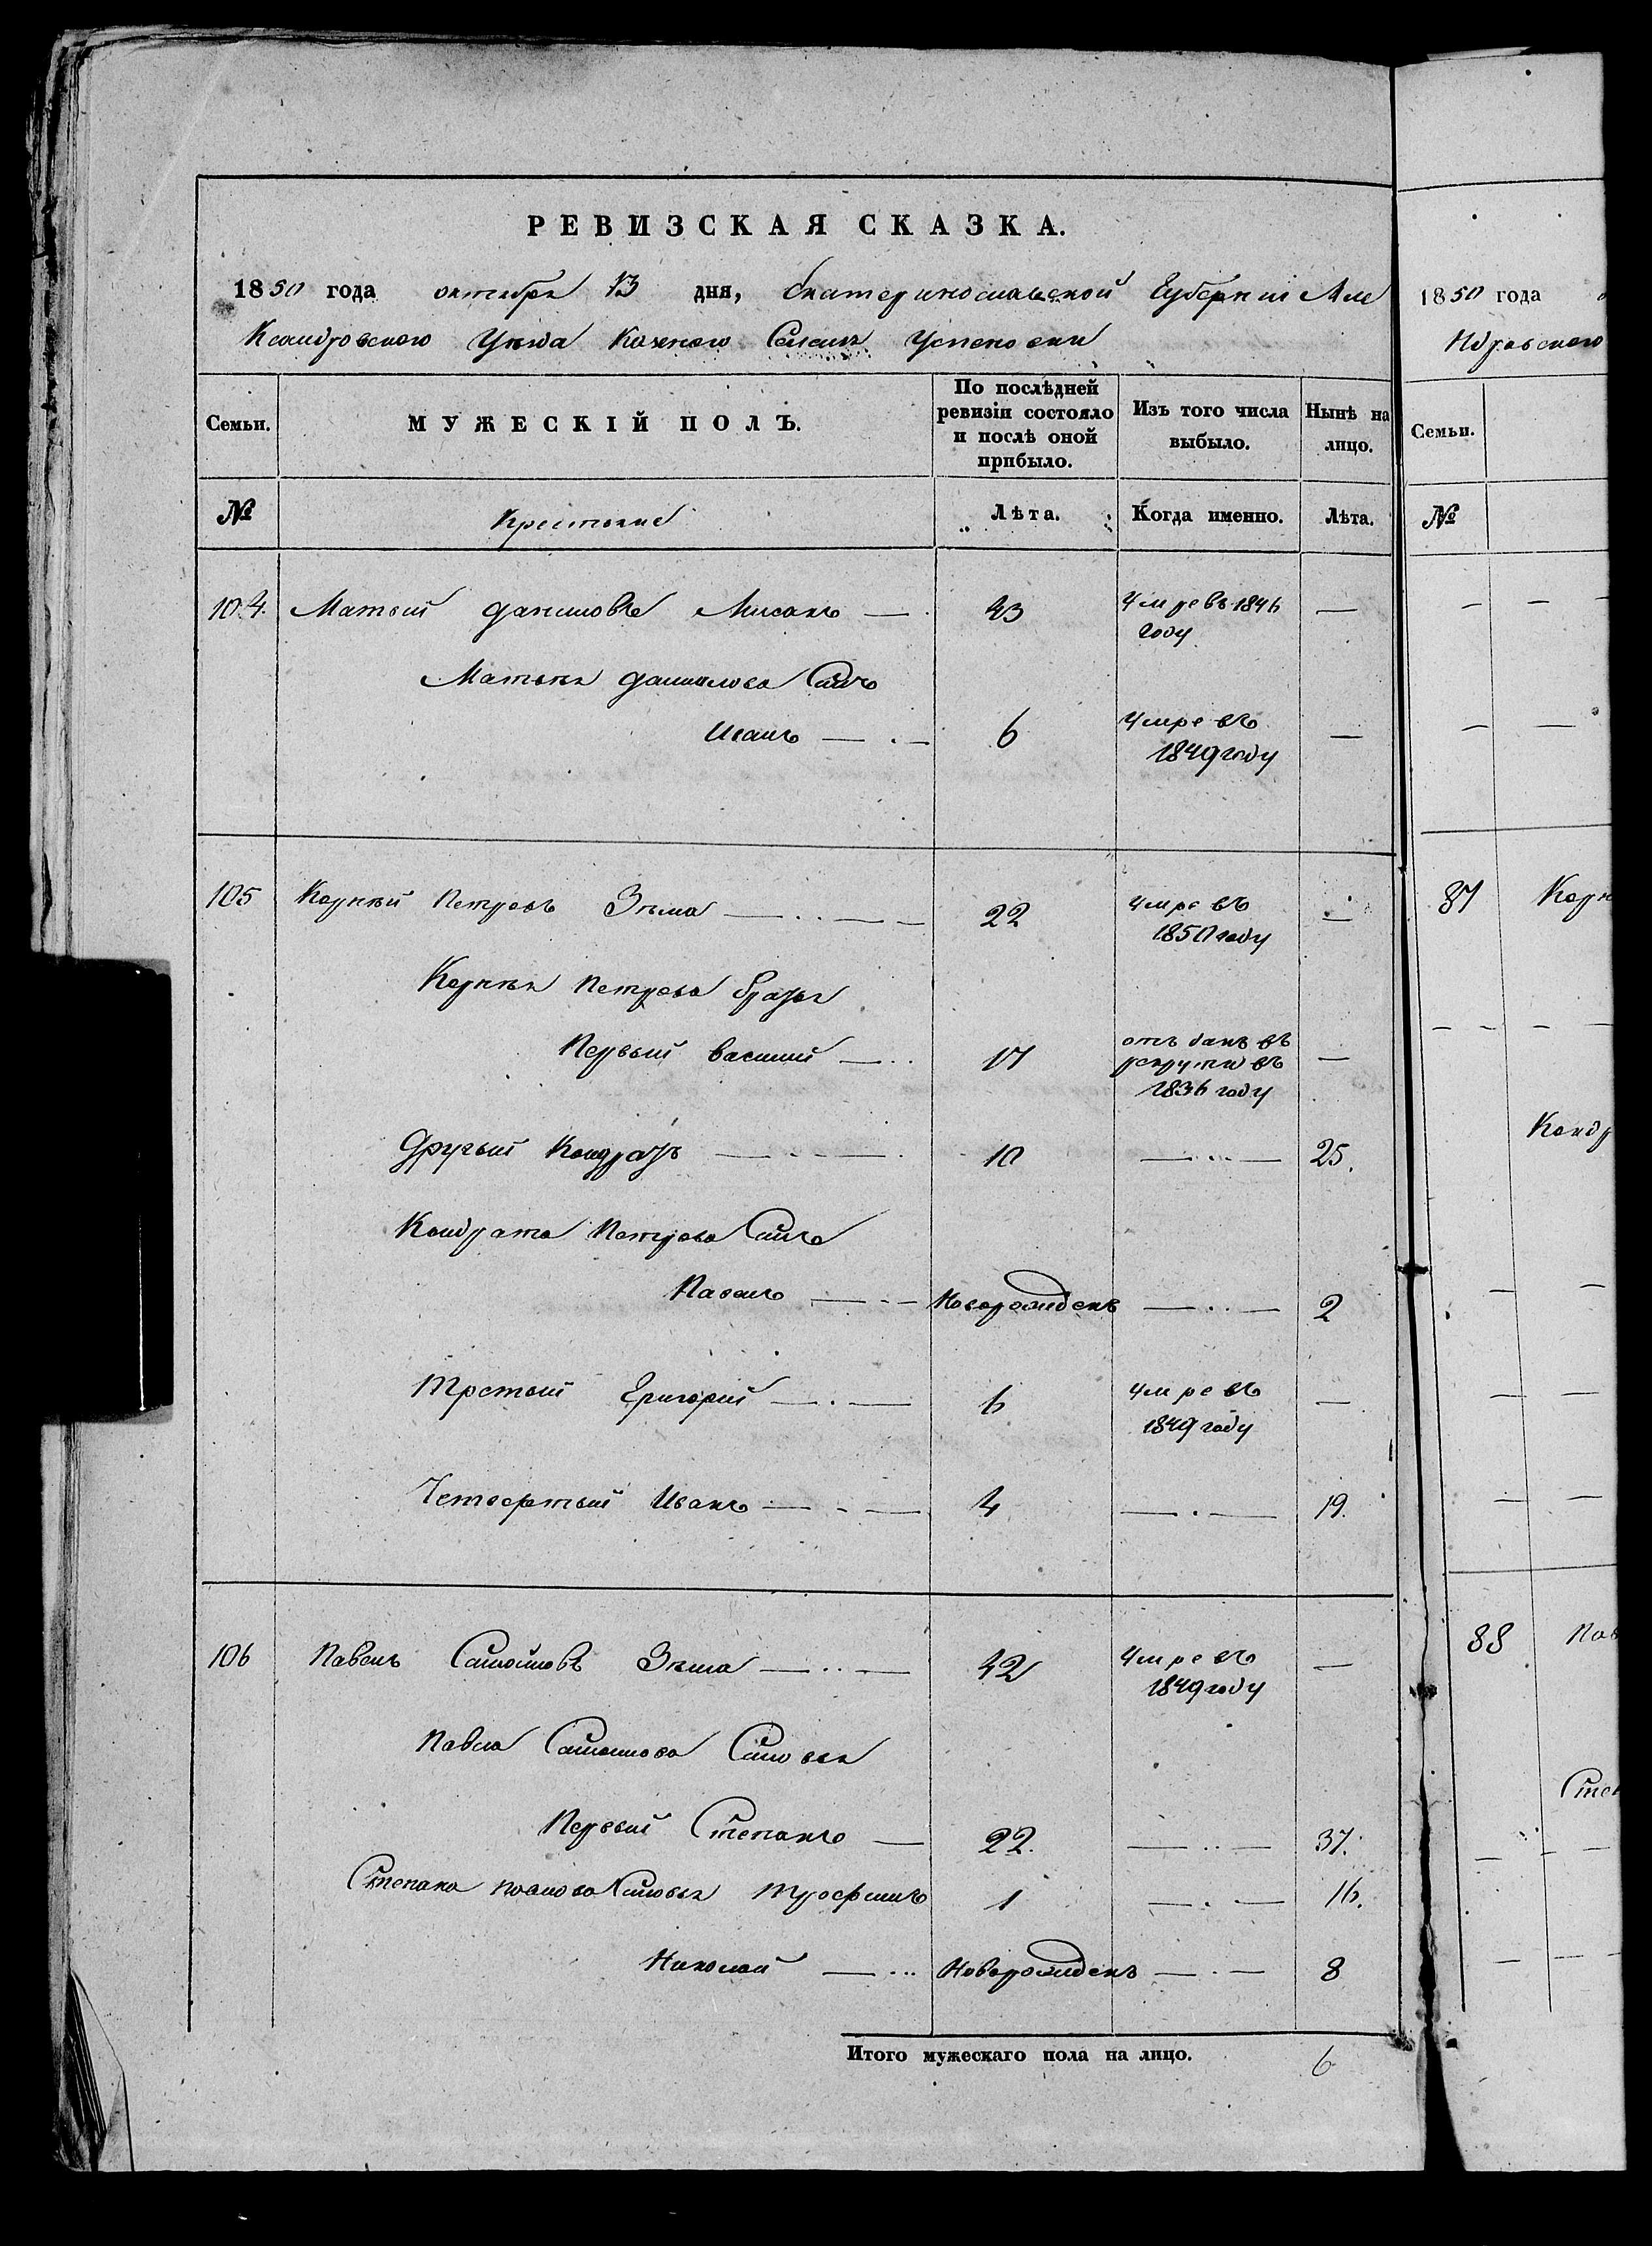 РЕВИЗСКАЯ СКАЗКА.
1850 года октября 13 дня, Екатеринославской Губерніи Але
Ксандровского Уѣзда Казеного Селенія Успеновки
Семьи. МУЖЕСКІЙ ПОЛЪ. По послѣдней ревизіи состояло и послѣ оной прибыло. Изъ того числа выбыло. Нынѣ на лицо.
№ Крестьяне Лѣта. Когда именно. Лѣта.
104. Матвій Даниловъ 43 умре въ 1846 году —
Матвѣя Данилова Сынъ
Иванъ — 6 умре въ 1849 году —
105 Корнѣй Петровъ Зѣма — 22 умре въ 1850 году —
Корнѣя Петрова Братья
Первый Василий — 17 отъ данъ въ рекруты въ 1836 году —
Другый Кондратъ — 10 — 25.
Кондрата Петрова Сынъ
Павелъ — Новорожденъ — 2
Третый Григорий — 6 умре въ 1849 году —
Четвертый Иванъ — 4 — 19.
106 Павелъ Самойловъ Зѣма — 42 умре въ 1849 году —
Павла Самойлова Сыновья
Первый Степанъ — 22. — 37.
Степана Павлова Сыновья Трофимъ 1 — 16.
Николай — Новорожденъ — 8
Итого мужескаго пола на лицо. 6
1850 года
Ндровского
Семьи.
№
87 Корн
Кондр
88 Пав
Степ